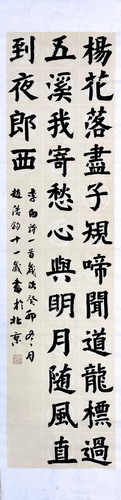 楊花落盡子規啼聞道龍標過
五溪我寄愁心與明月随風直
到夜郎西
李白詩一首歲次癸卯冬月
趙浩鈞十一歲書於北京